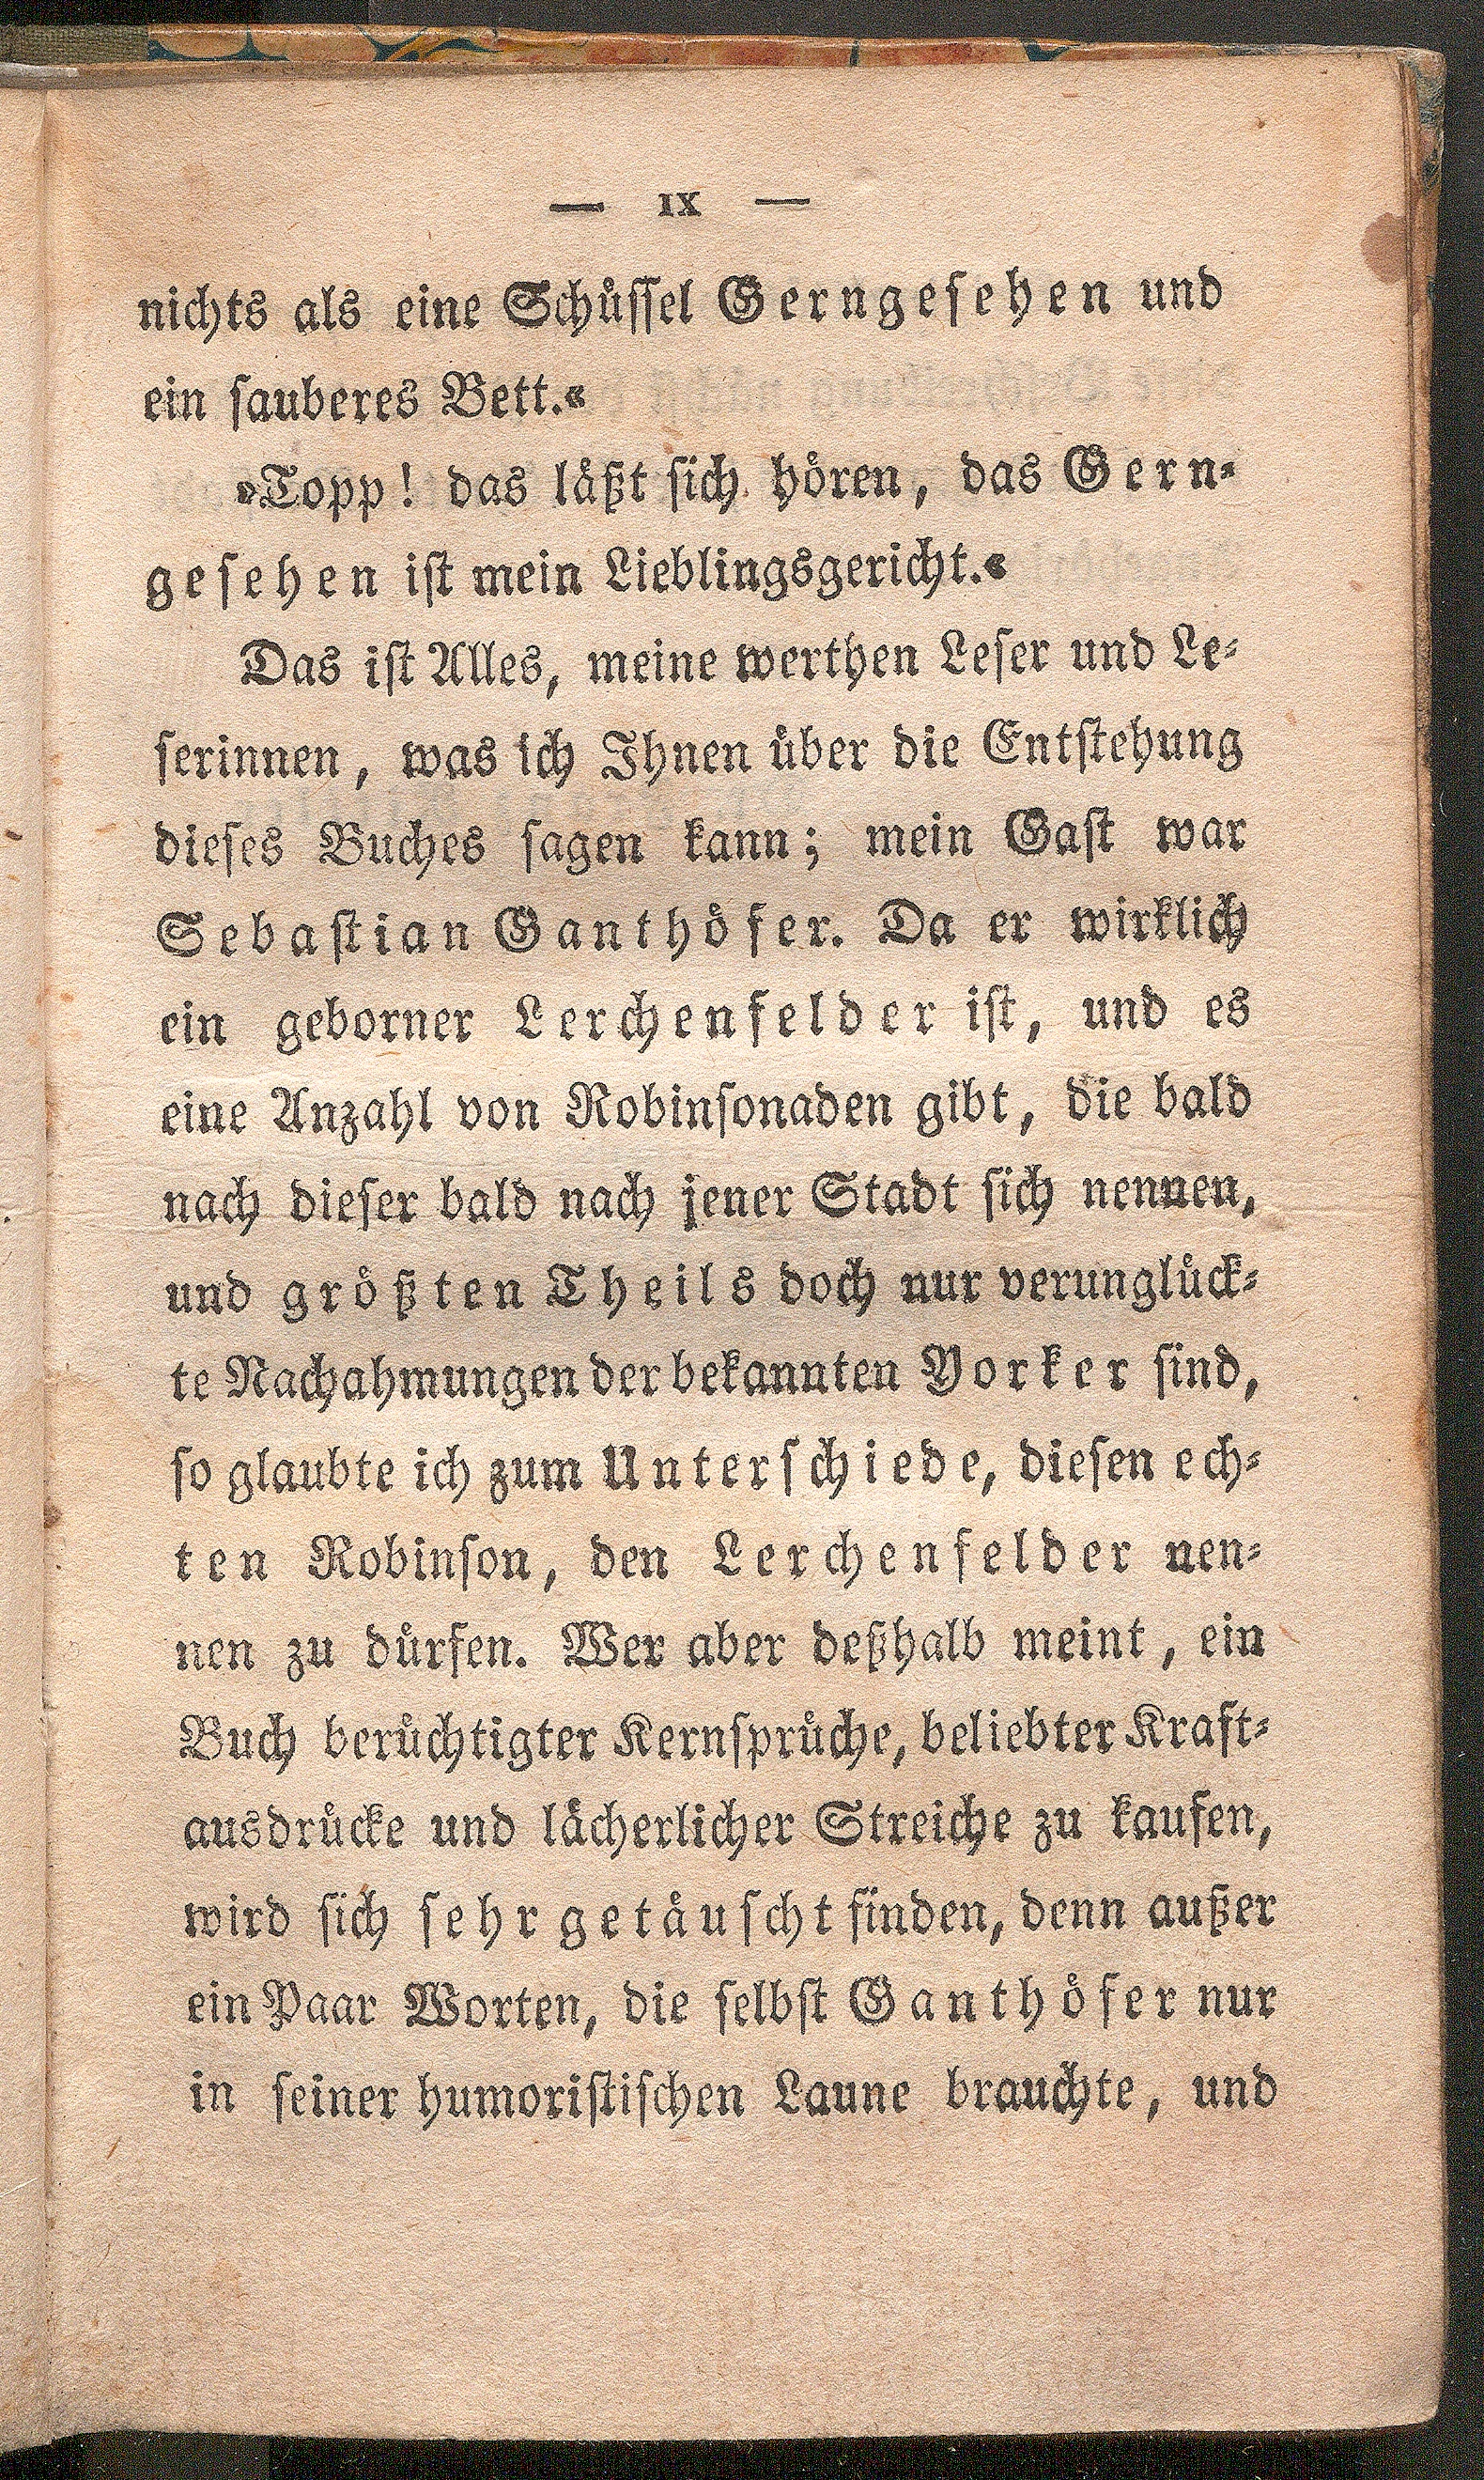 — IX —
nichts als eine Schüssel Gerngesehen und
ein sauberes Bett.«
»Topp! das läßt sich hören, das Gern-
gesehen ist mein Lieblingsgericht.«
Das ist Alles, meine werthen Leser und Le-
serinnen, was ich Ihnen über die Entstehung
dieses Buches sagen kann; mein Gast war
Sebastian Ganthöfer. Da er wirklich
ein geborner Lerchenfelder ist, und es
eine Anzahl von Robinsonaden gibt, die bald
nach dieser bald nach jener Stadt sich nennen,
und größten Theils doch nur verunglück-
te Nachahmungen der bekannten Yorker sind,
so glaubte ich zum Unterschiede, diesen ech-
ten Robinson, den Lerchenfelder nen-
nen zu dürfen. Wer aber deßhalb meint, ein
Buch berüchtigter Kernsprüche, beliebter Kraft-
ausdrücke und lächerlicher Streiche zu kaufen,
wird sich sehr getäuscht finden, denn außer
ein Paar Worten, die selbst Ganthöfer nur
in seiner humoristischen Laune brauchte, und